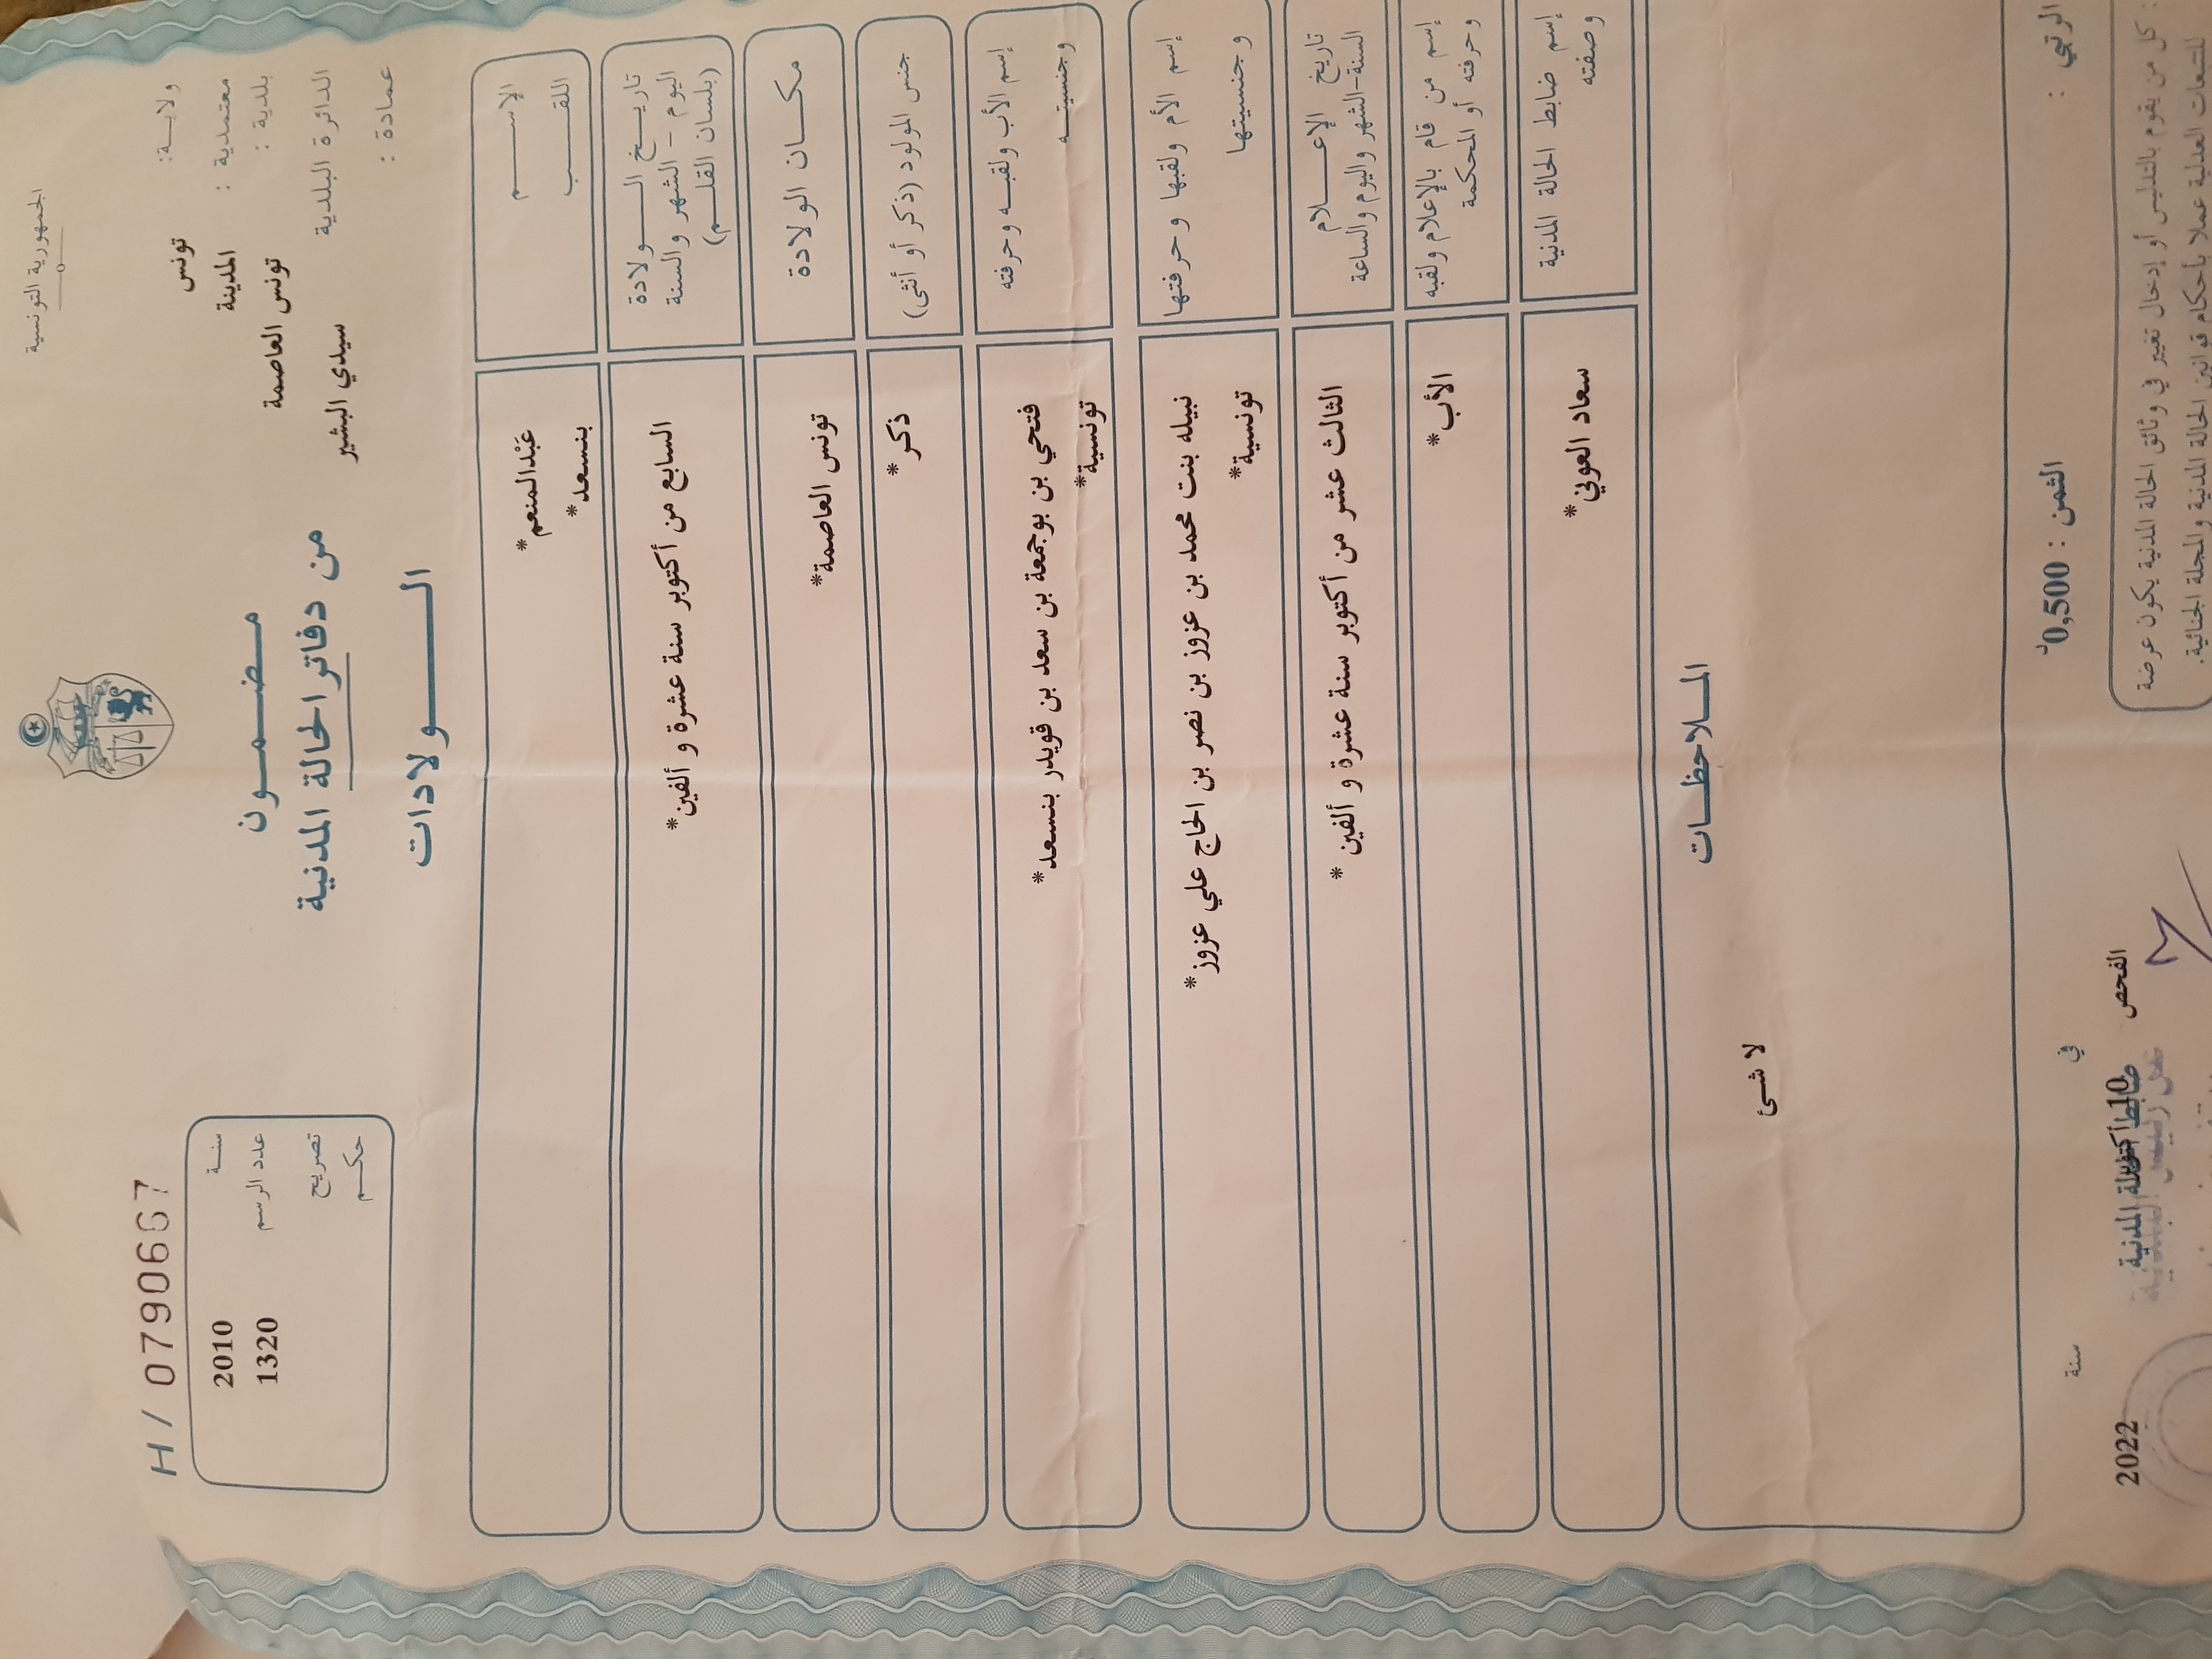 الجمهورية التونسية
H/ 0790667
ولايـة: تونس
معتمدية : المدينة
بلدية : تونس العاصمة
الدائرة البلدية سيدي البشير
عمادة :
سنـة 2010
عدد الرسم 1320
تصريح
حكـم
مـضـمـون
من دفاتر الحالة المدنية
الـولادات
الإسـم عَبْدالمنعم*
اللقـب بنسعد*
تاريـخ الـولادة السابع من أكتوبر سنة عشرة و ألفين*
اليوم - الشهر والسنة
(بلسان القلـم)
مكـان الولادة تونس العاصمة*
جنس المولود (ذكر أو أنثى) ذكر*
إسم الأب ولقبـه وحرفته فتحي بن بوجمعة بن سعد بن قويدر بنسعد*
وجنسيتـه تونسية*
إسم الأم ولقبها وحرفتها نبيله بنت محمد بن عزوز بن نصر بن الحاج علي عزوز*
وجنسيتها تونسية*
تاريخ الإعـلام الثالث عشر من أكتوبر سنة عشرة و ألفين *
السنة-الشهر واليوم والساعة
إسم من قام بالإعلام ولقبه الأب*
وحرفته أو المحكمة
إسم ضابط الحالة المدنية سعاد العوني*
وصفته
المـلاحظـات
لا شئ
الرتبي :
الثمن : 0,500د
في
سنة
الفحص
10 أكتوبر
2022
ضابط الحالة المدنية
: كل من يقوم بالتدليس أو إدخال تغيير في وثائق الحالة المدنية يكون عرضة
للتتبعات العدلية عملا بأحكام قوانين الحالة المدنية والمجلة الجنائية.